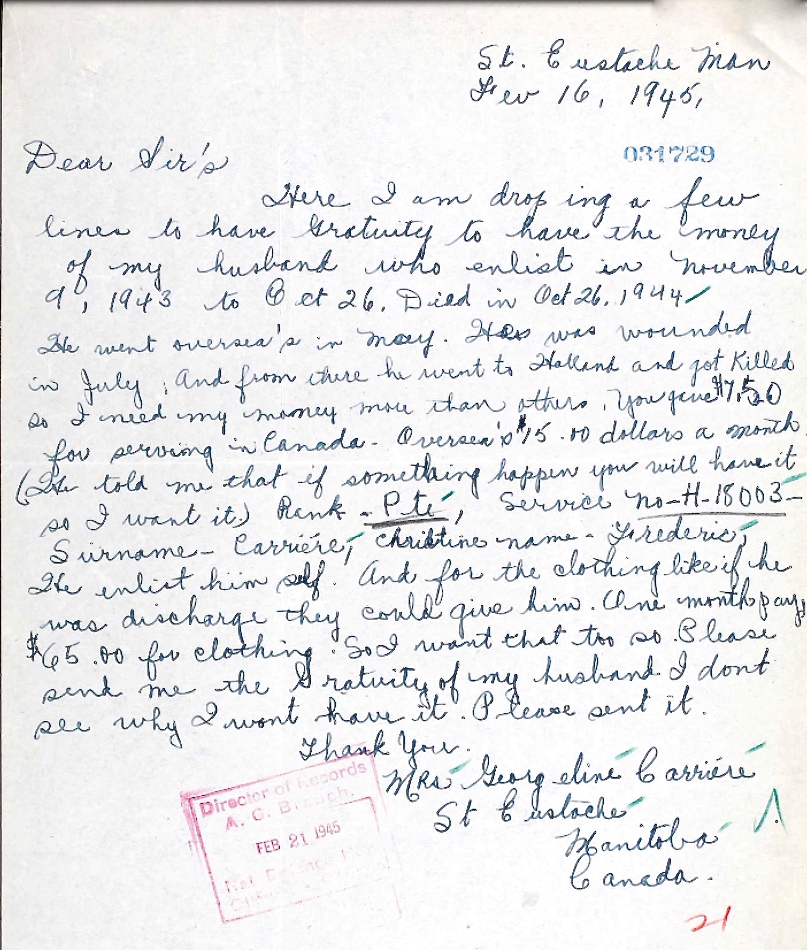 St. Eustache Man
Fev 16, 1945,
031729
Dear Sir's
Here I am drop ing a few
lines to have Gratuity to have the money
of my husband who enlist in November
9, 1943 to Oct 26, Died in Oct 26, 1944
He went oversea's in may. He was wounded
in July, And from there he went to Holland and got Killed
so I need my money more than others. You give $7.50
for serving in Canada - Oversea's $15.00 dollars a month
(He told me that if something happen you will have it
so I want it.) Rank - Pte, Service no-H-18003-
Surname - Carriére, christine name - Frederic,
He enlist him self. And for the clothing like if he
was discharge they could give him. One month pay,
$65.00 for clothing. So I want that too so. Please
send me the Gratuity of my husband. I dont
see why I wont have it. Please sent it.
Thank You.
Mrs Georgeline Carriére
St Eustache
Manitoba
Canada.
Director of Records
A. G. Branch.
FEB 21 1945
Nat. Defence
21